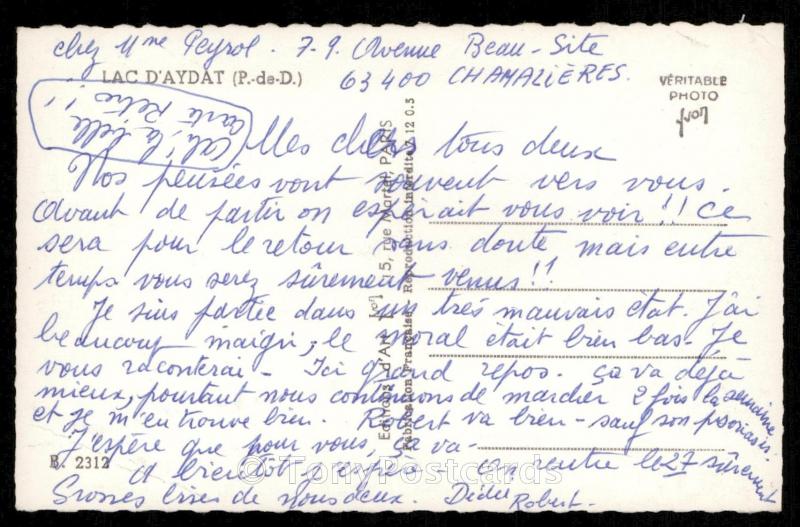 chez Mme Peyrol. 7-9. Avenue Beau-Site
63400 CHAMALIÈRES.
LAC D'AYDAT (P.-de-D.)
VÉRITABLE
PHOTO
yvon
Oh! la belle
carte Rétro!!
Mes chers tous deux
Nos pensées vont souvent vers vous.
Avant de partir on espérait vous voir!! Ce
sera pour le retour sans doute mais entre
temps vous serez sûrement venus!!
Je suis partie dans un très mauvais état. J'ai
beaucoup maigri, le moral était bien bas. Je
vous raconterai - Ici grand repos. ça va déjà
mieux, pourtant nous continuons de marcher 2 fois la semaine
et je m'en trouve bien. Robert va bien - sauf son psoriasis.
J'espère que pour vous, ça va -
B. 2312
A bientôt j'espère - on rentre le 27 sûrement
Grosses bises de nous deux.
Robert.
Editions d'Art yvon 15, rue Martel, PARIS
Fabrication Française Reproduction interdite 12 0.5
© TonyPostcards